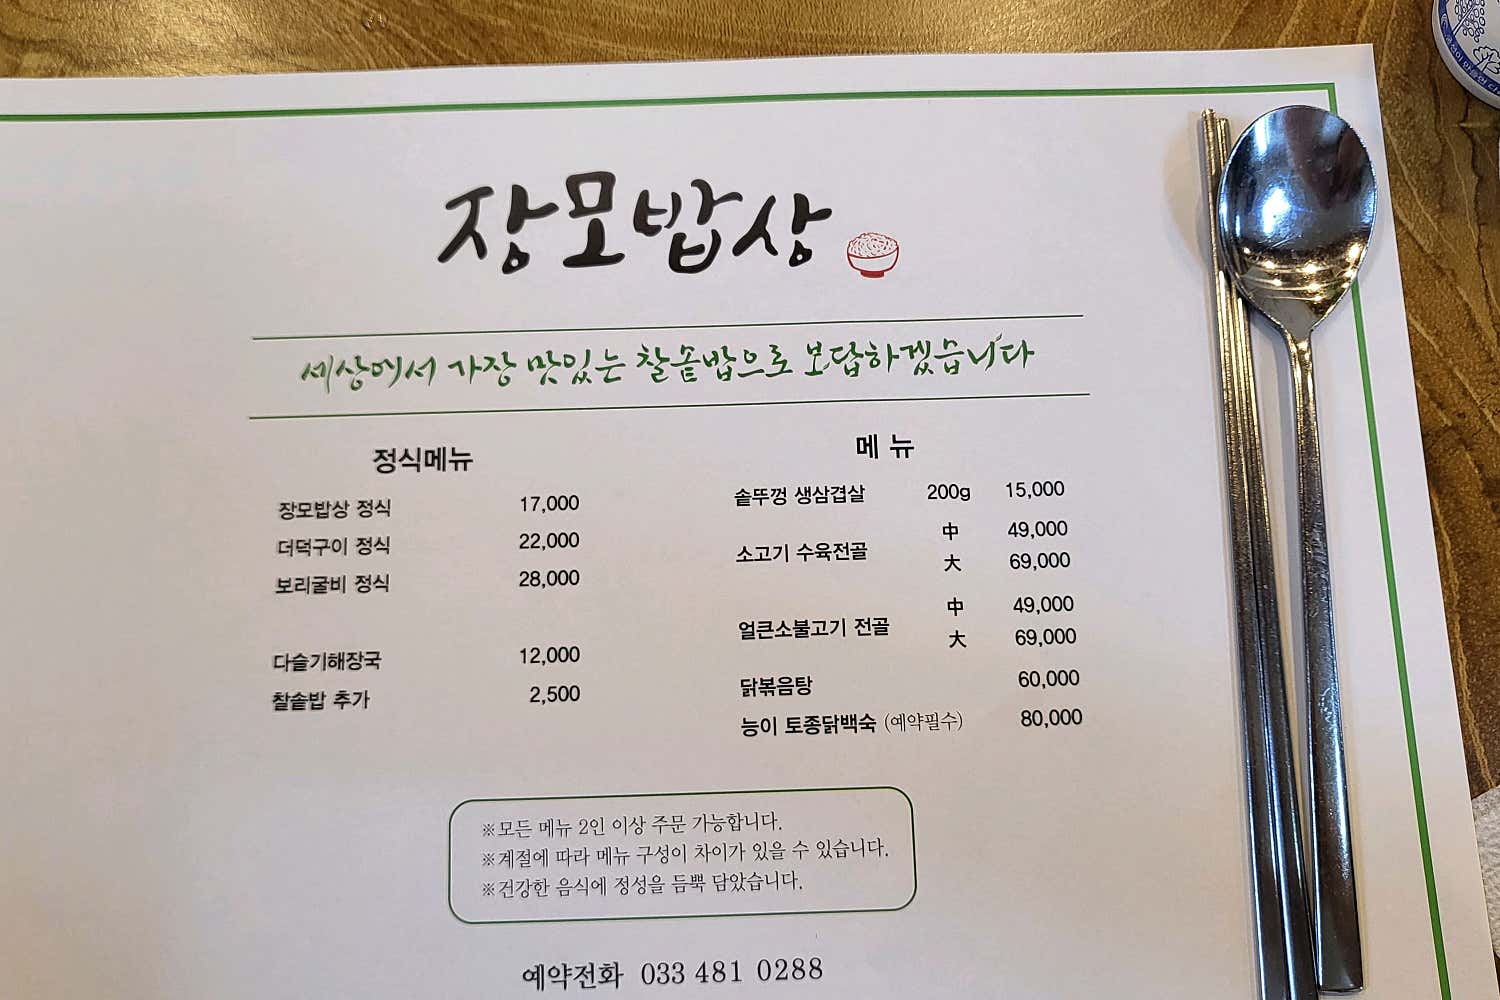 장모밥상
세상에서 가장 맛있는 찰솥밥으로 보답하겠습니다
정식메뉴
장모밥상 정식 17,000
더덕구이 정식 22,000
보리굴비 정식 28,000
다슬기해장국 12,000
찰솥밥 추가 2,500
메 뉴
솥뚜껑 생삼겹살 200g 15,000
소고기 수육전골 中 49,000
大 69,000
얼큰소불고기 전골 中 49,000
大 69,000
닭볶음탕 60,000
능이 토종닭백숙 (예약필수) 80,000
※모든 메뉴 2인 이상 주문 가능합니다.
※계절에 따라 메뉴 구성이 차이가 있을 수 있습니다.
※건강한 음식에 정성을 듬뿍 담았습니다.
예약전화 033 481 0288